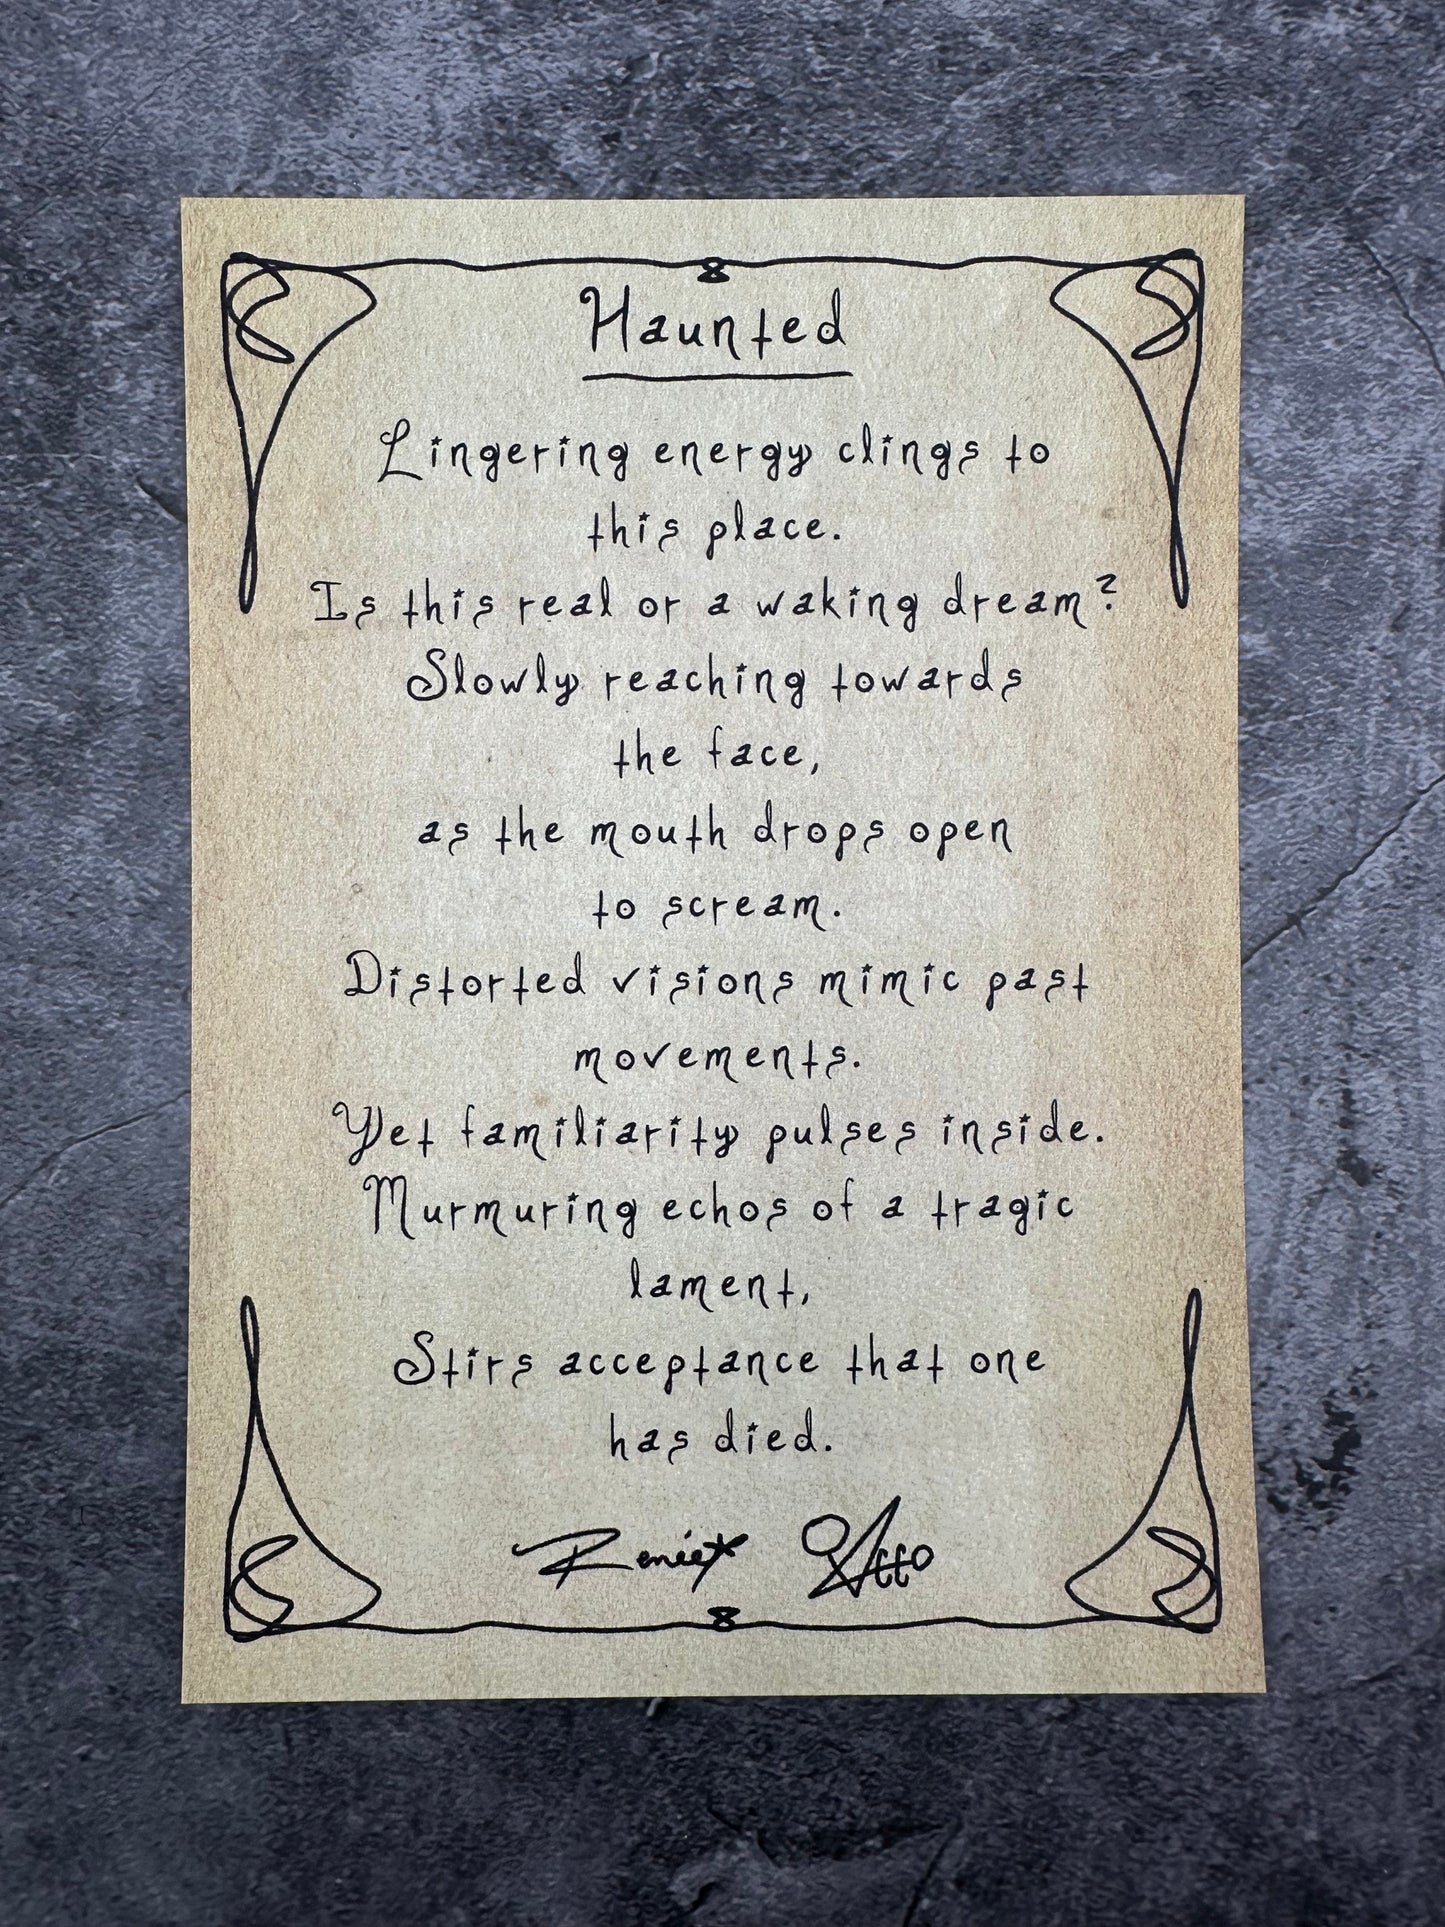 Haunted
Lingering energy clings to
this place.
Is this real or a waking dream?
Slowly reaching towards
the face,
as the mouth drops open
to scream.
Distorted visions mimic past
movements.
Yet familiarity pulses inside.
Murmuring echos of a tragic
lament,
Stirs acceptance that one
has died.
Renée